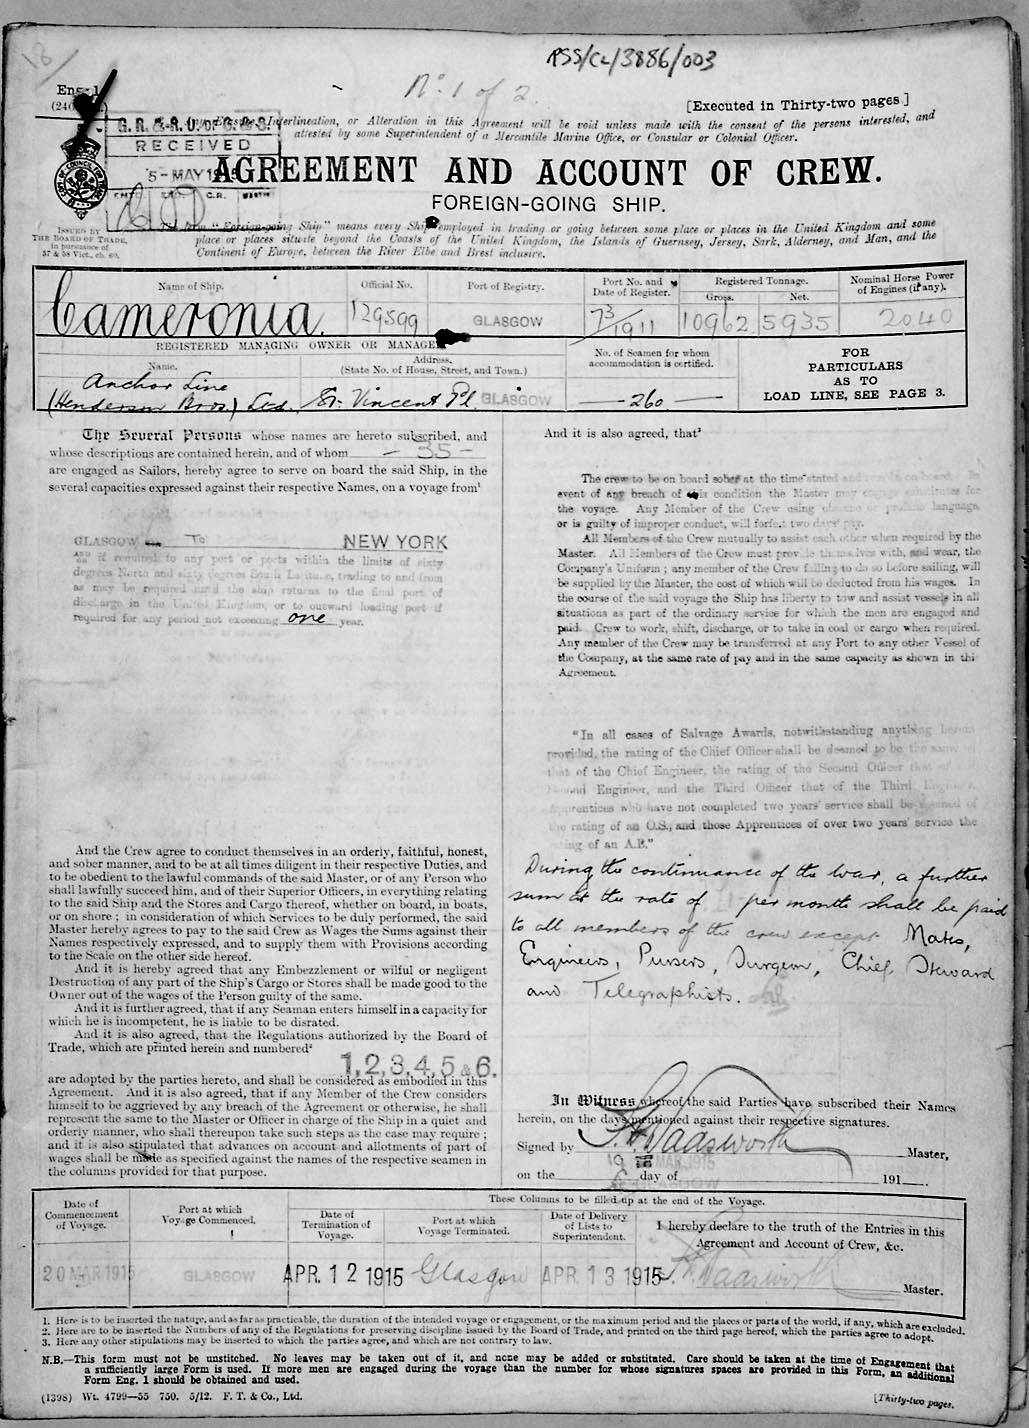 18/
PSS/CL/3886/003
No. 1 of 2.
Eng. 1
[Executed in Thirty-two pages.]
Any Erasure, Interlineation, or Alteration in this Agreement will be void unless made with the consent of the persons interested, and
attested by some Superintendent of a Mercantile Marine Office, or Consular or Colonial Officer.
G. R. & R. U. of G. & S.
RECEIVED
5-MAY 1915
AGREEMENT AND ACCOUNT OF CREW.
FOREIGN-GOING SHIP.
ISSUED BY
THE BOARD OF TRADE,
in pursuance of
57 & 58 Vict., ch. 60.
The term "Foreign-going Ship" means every Ship employed in trading or going between some place or places in the United Kingdom and some
place or places situate beyond the Coasts of the United Kingdom, the Islands of Guernsey, Jersey, Sark, Alderney, and Man, and the
Continent of Europe, between the River Elbe and Brest inclusive.
Name of Ship.
Official No.
Port of Registry.
Port No. and
Date of Register.
Registered Tonnage.
Gross.
Net.
Nominal Horse Power
of Engines (if any).
Cameronia.
129599
GLASGOW
73/1911
10962
5935
2040
REGISTERED MANAGING OWNER OR MANAGER
Name.
Address.
(State No. of House, Street, and Town.)
No. of Seamen for whom
accommodation is certified.
FOR
PARTICULARS
AS TO
LOAD LINE, SEE PAGE 3.
Anchor Line
(Henderson Bros.) Ltd.
St. Vincent Pl.
GLASGOW
—260—
The Several Persons whose names are hereto subscribed, and
whose descriptions are contained herein, and of whom - 35 -
are engaged as Sailors, hereby agree to serve on board the said Ship, in the
several capacities expressed against their respective Names, on a voyage from¹
GLASGOW To NEW YORK
and if required to any port or ports within the limits of sixty
degrees North and sixty degrees South Latitude, trading to and from
as may be required until the ship returns to the final port of
discharge in the United Kingdom, or to outward loading port if
required for any period not exceeding one year.
And the Crew agree to conduct themselves in an orderly, faithful, honest,
and sober manner, and to be at all times diligent in their respective Duties, and
to be obedient to the lawful commands of the said Master, or of any Person who
shall lawfully succeed him, and of their Superior Officers, in everything relating
to the said Ship and the Stores and Cargo thereof, whether on board, in boats,
or on shore; in consideration of which Services to be duly performed, the said
Master hereby agrees to pay to the said Crew as Wages the Sums against their
Names respectively expressed, and to supply them with Provisions according
to the Scale on the other side hereof.
And it is hereby agreed that any Embezzlement or wilful or negligent
Destruction of any part of the Ship's Cargo or Stores shall be made good to the
Owner out of the wages of the Person guilty of the same.
And it is further agreed, that if any Seaman enters himself in a capacity for
which he is incompetent, he is liable to be disrated.
And it is also agreed, that the Regulations authorized by the Board of
Trade, which are printed herein and numbered²
1,2,3,4,5 & 6.
are adopted by the parties hereto, and shall be considered as embodied in this
Agreement. And it is also agreed, that if any Member of the Crew considers
himself to be aggrieved by any breach of the Agreement or otherwise, he shall
represent the same to the Master or Officer in charge of the Ship in a quiet and
orderly manner, who shall thereupon take such steps as the case may require;
and it is also stipulated that advances on account and allotments of part of
wages shall be made as specified against the names of the respective seamen in
the columns provided for that purpose.
And it is also agreed, that³
The crew to be on board sober at the time stated and march on board. In
event of any breach of this condition the Master may engage substitutes for
the voyage. Any Member of the Crew using obscene or profane language,
or is guilty of improper conduct, will forfeit two days' pay.
All Members of the Crew mutually to assist each other when required by the
Master. All Members of the Crew must provide themselves with, and wear, the
Company's Uniform; any member of the Crew failing to do so before sailing, will
be supplied by the Master, the cost of which will be deducted from his wages. In
the course of the said voyage the Ship has liberty to tow and assist vessels in all
situations as part of the ordinary service for which the men are engaged and
paid. Crew to work, shift, discharge, or to take in coal or cargo when required.
Any member of the Crew may be transferred at any Port to any other Vessel of
the Company, at the same rate of pay and in the same capacity as shown in this
Agreement.
"In all cases of Salvage Awards, notwithstanding anything herein
provided, the rating of the Chief Officer shall be deemed to be the same as
that of the Chief Engineer, the rating of the Second Officer that of
Second Engineer, and the Third Officer that of the Third Engineer.
Apprentices who have not completed two years' service shall be
the rating of an O.S., and those Apprentices of over two years' service the
rating of an A.B."
During the continuance of the War, a further
sum at the rate of per month shall be paid
to all members of the crew except Mates,
Engineers, Pursers, Surgeon, Chief Steward
and Telegraphists.
In Witness whereof the said Parties have subscribed their Names
herein, on the days mentioned against their respective signatures.
Signed by F. W. Wadsworth Master,
on the 19 MAR 1915 day of 191 .
GLASGOW
These Columns to be filled up at the end of the Voyage.
Date of
Commencement
of Voyage.
Port at which
Voyage Commenced.
Date of
Termination of
Voyage.
Port at which
Voyage Terminated.
Date of Delivery
of Lists to
Superintendent.
I hereby declare to the truth of the Entries in this
Agreement and Account of Crew, &c.
20 MAR 1915
GLASGOW
APR. 12 1915
Glasgow
APR 13 1915
F. W. Wadsworth
Master.
1. Here is to be inserted the nature, and as far as practicable, the duration of the intended voyage or engagement, or the maximum period and the places or parts of the world, if any, which are excluded.
2. Here are to be inserted the Numbers of any of the Regulations for preserving discipline issued by the Board of Trade, and printed on the third page hereof, which the parties agree to adopt.
3. Here any other stipulations may be inserted to which the parties agree, and which are not contrary to law.
N.B.—This form must not be unstitched. No leaves may be taken out of it, and none may be added or substituted. Care should be taken at the time of Engagement that
a sufficiently large Form is used. If more men are engaged during the voyage than the number for whose signatures spaces are provided in this Form, an additional
Form Eng. 1 should be obtained and used.
(1398) Wt. 4799—55 750. 5/12. F. T. & Co., Ltd.
[Thirty-two pages.